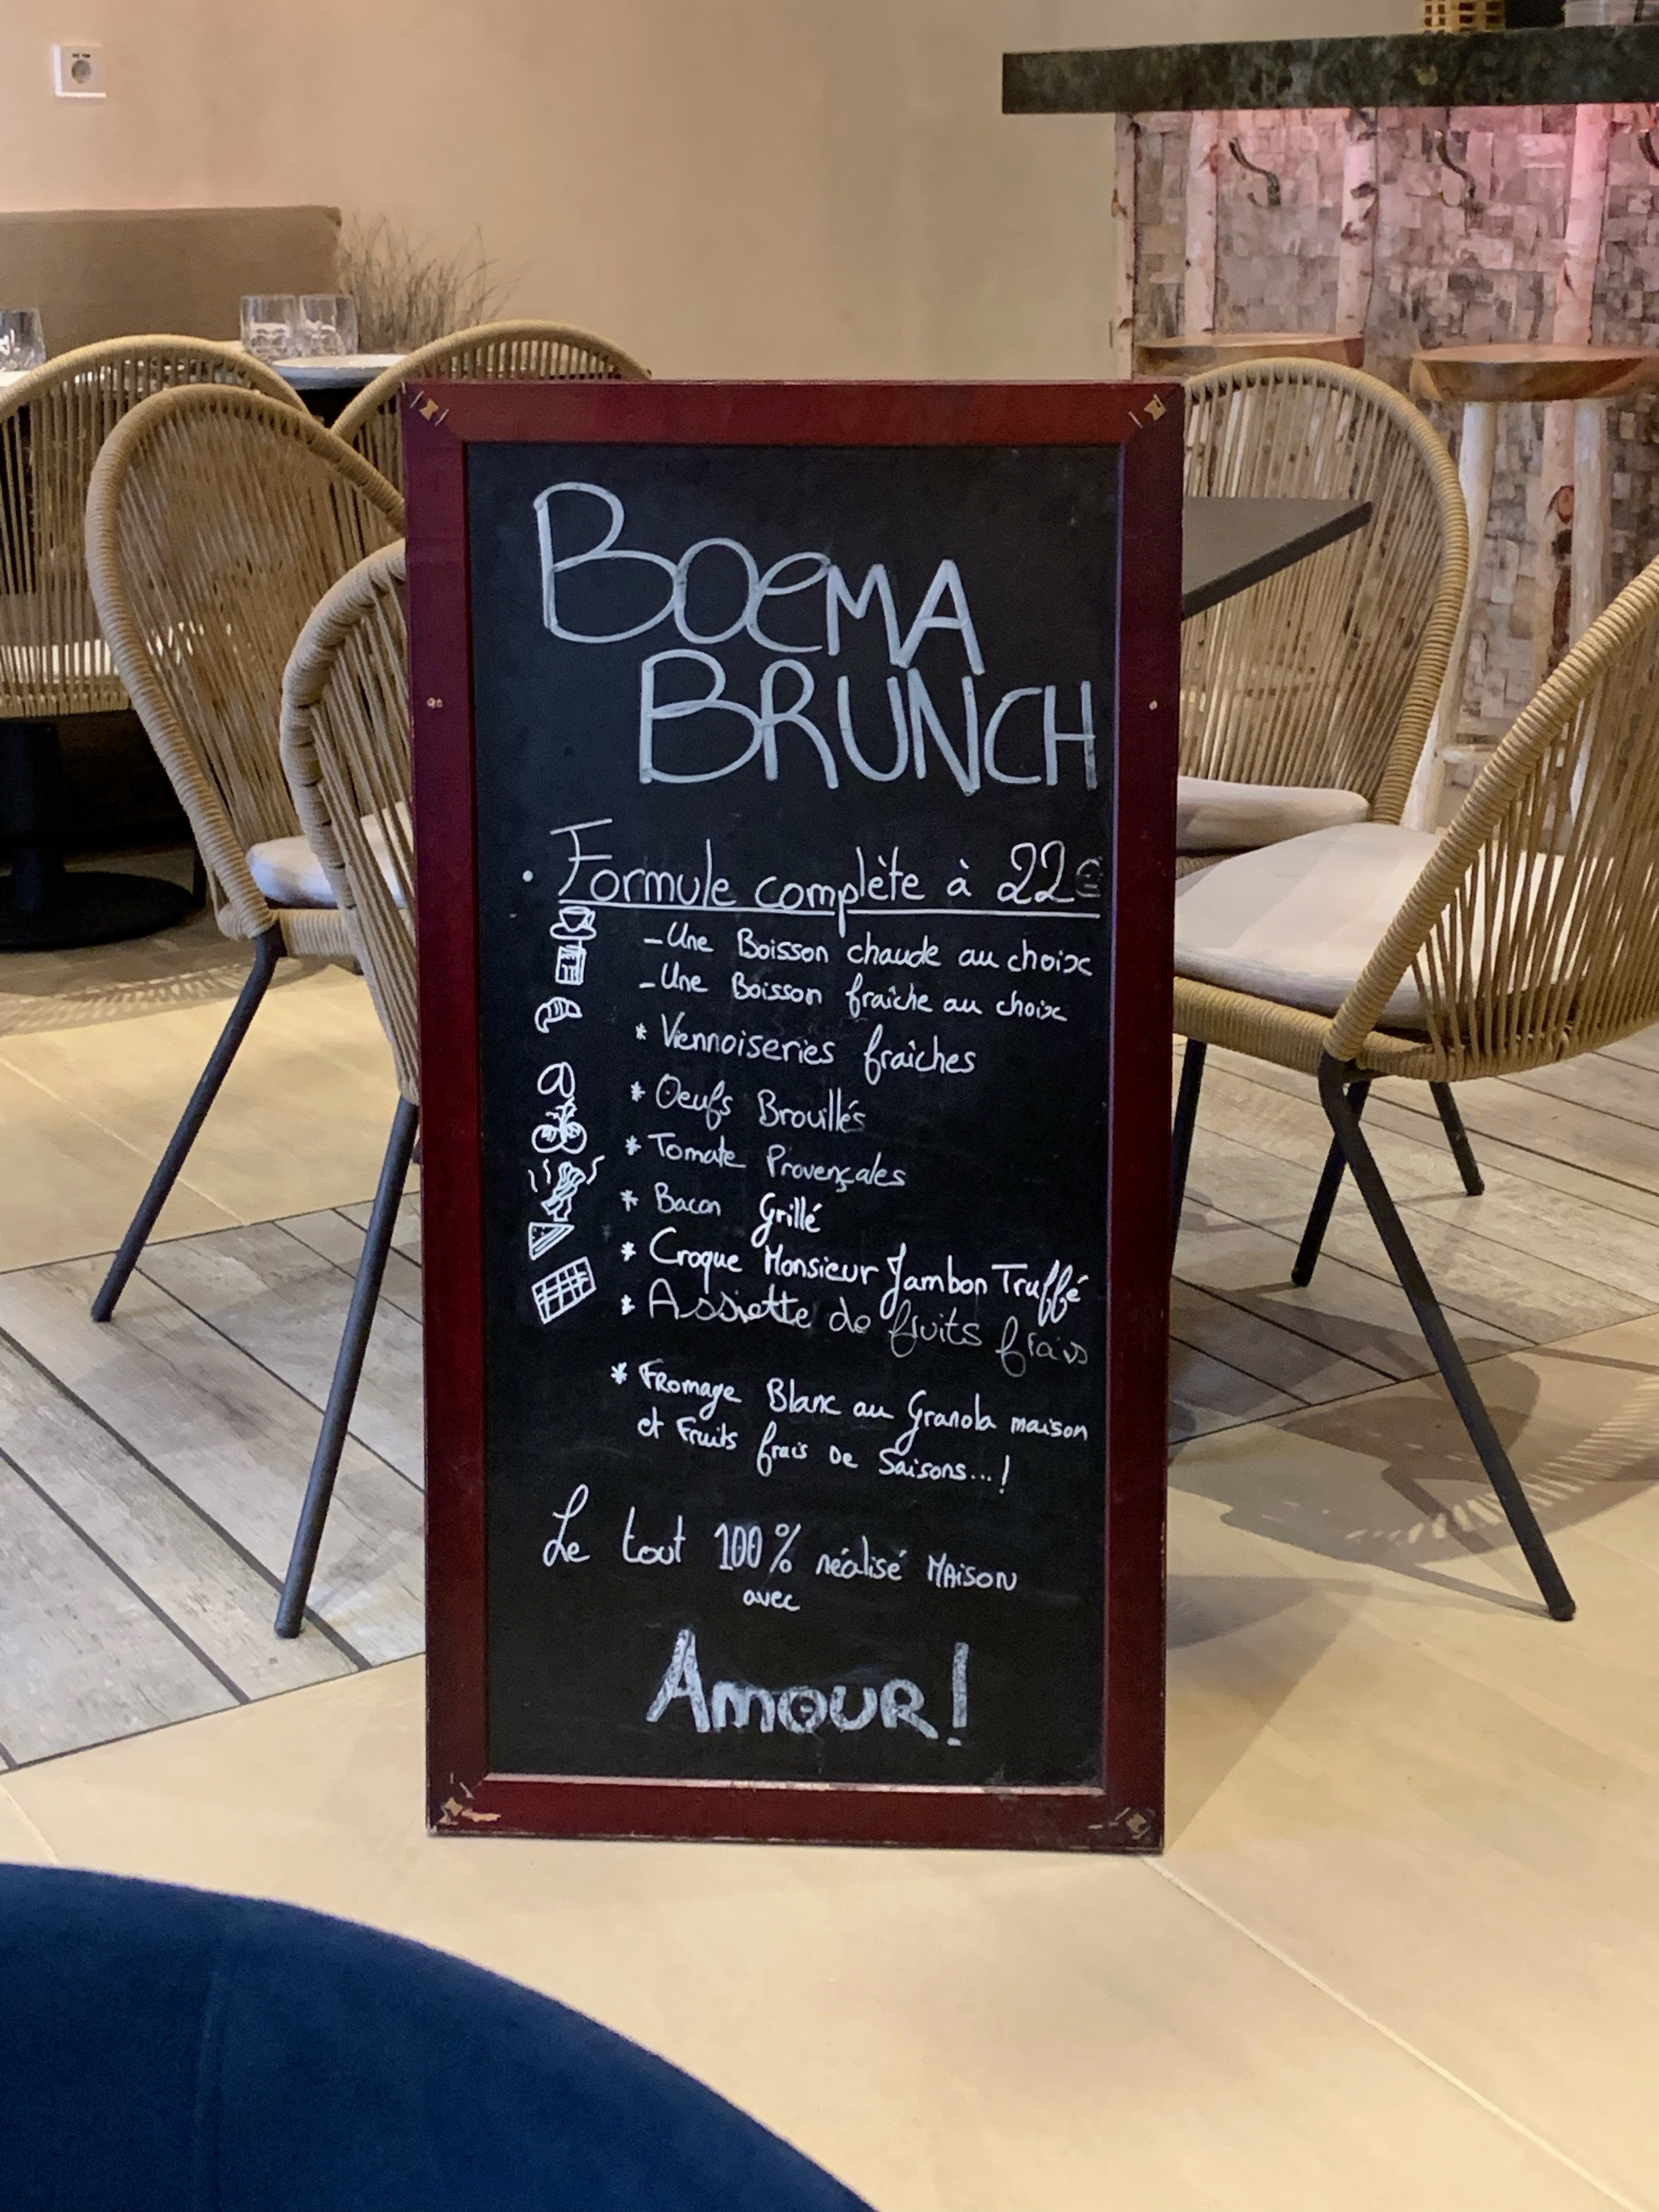 BOEMA
BRUNCH
• Formule complète à 22€
- Une Boisson chaude au choix
- Une Boisson fraîche au choix
* Viennoiseries fraîches
* Oeufs Brouillés
* Tomate Provençales
* Bacon Grillé
* Croque Monsieur Jambon Truffé
* Assiette de fruits frais
* Fromage Blanc au Granola maison
et Fruits frais De Saisons...!
Le tout 100% réalisé Maison
avec
Amour!